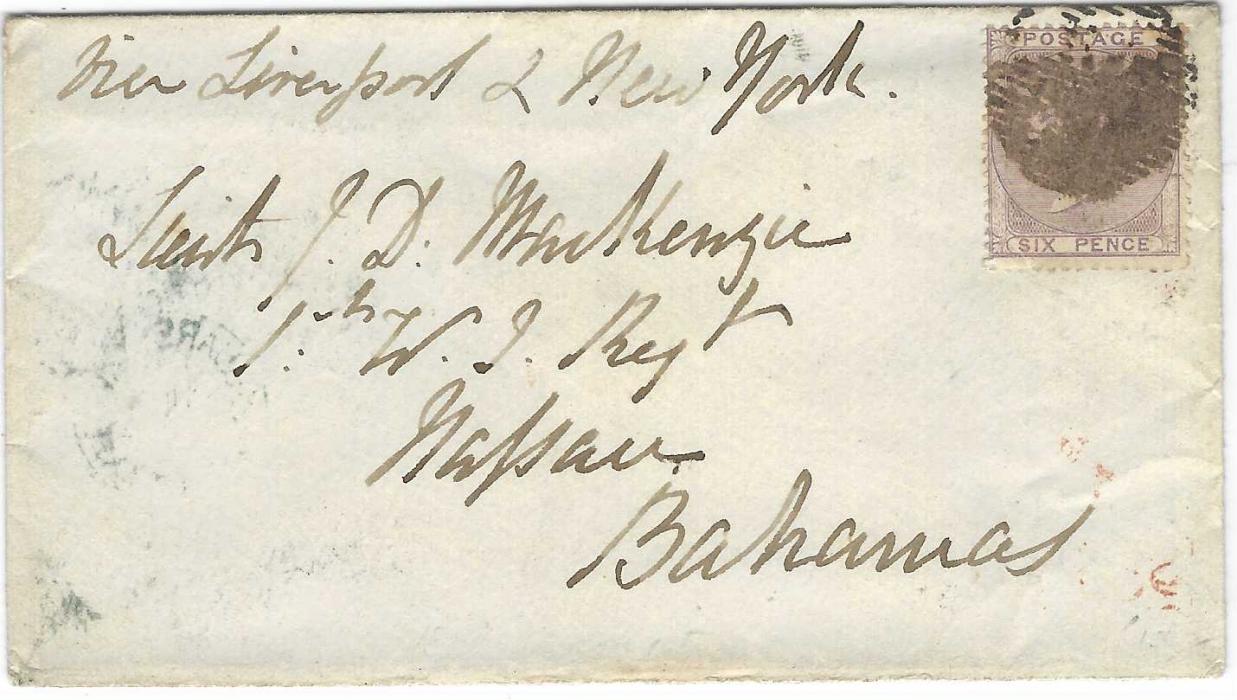 POSTAGE
via Liverpool & New York.
Lieut J. D. MacKenzie
SIX PENCE
1st W. I. Regt
Nassau
Bahamas